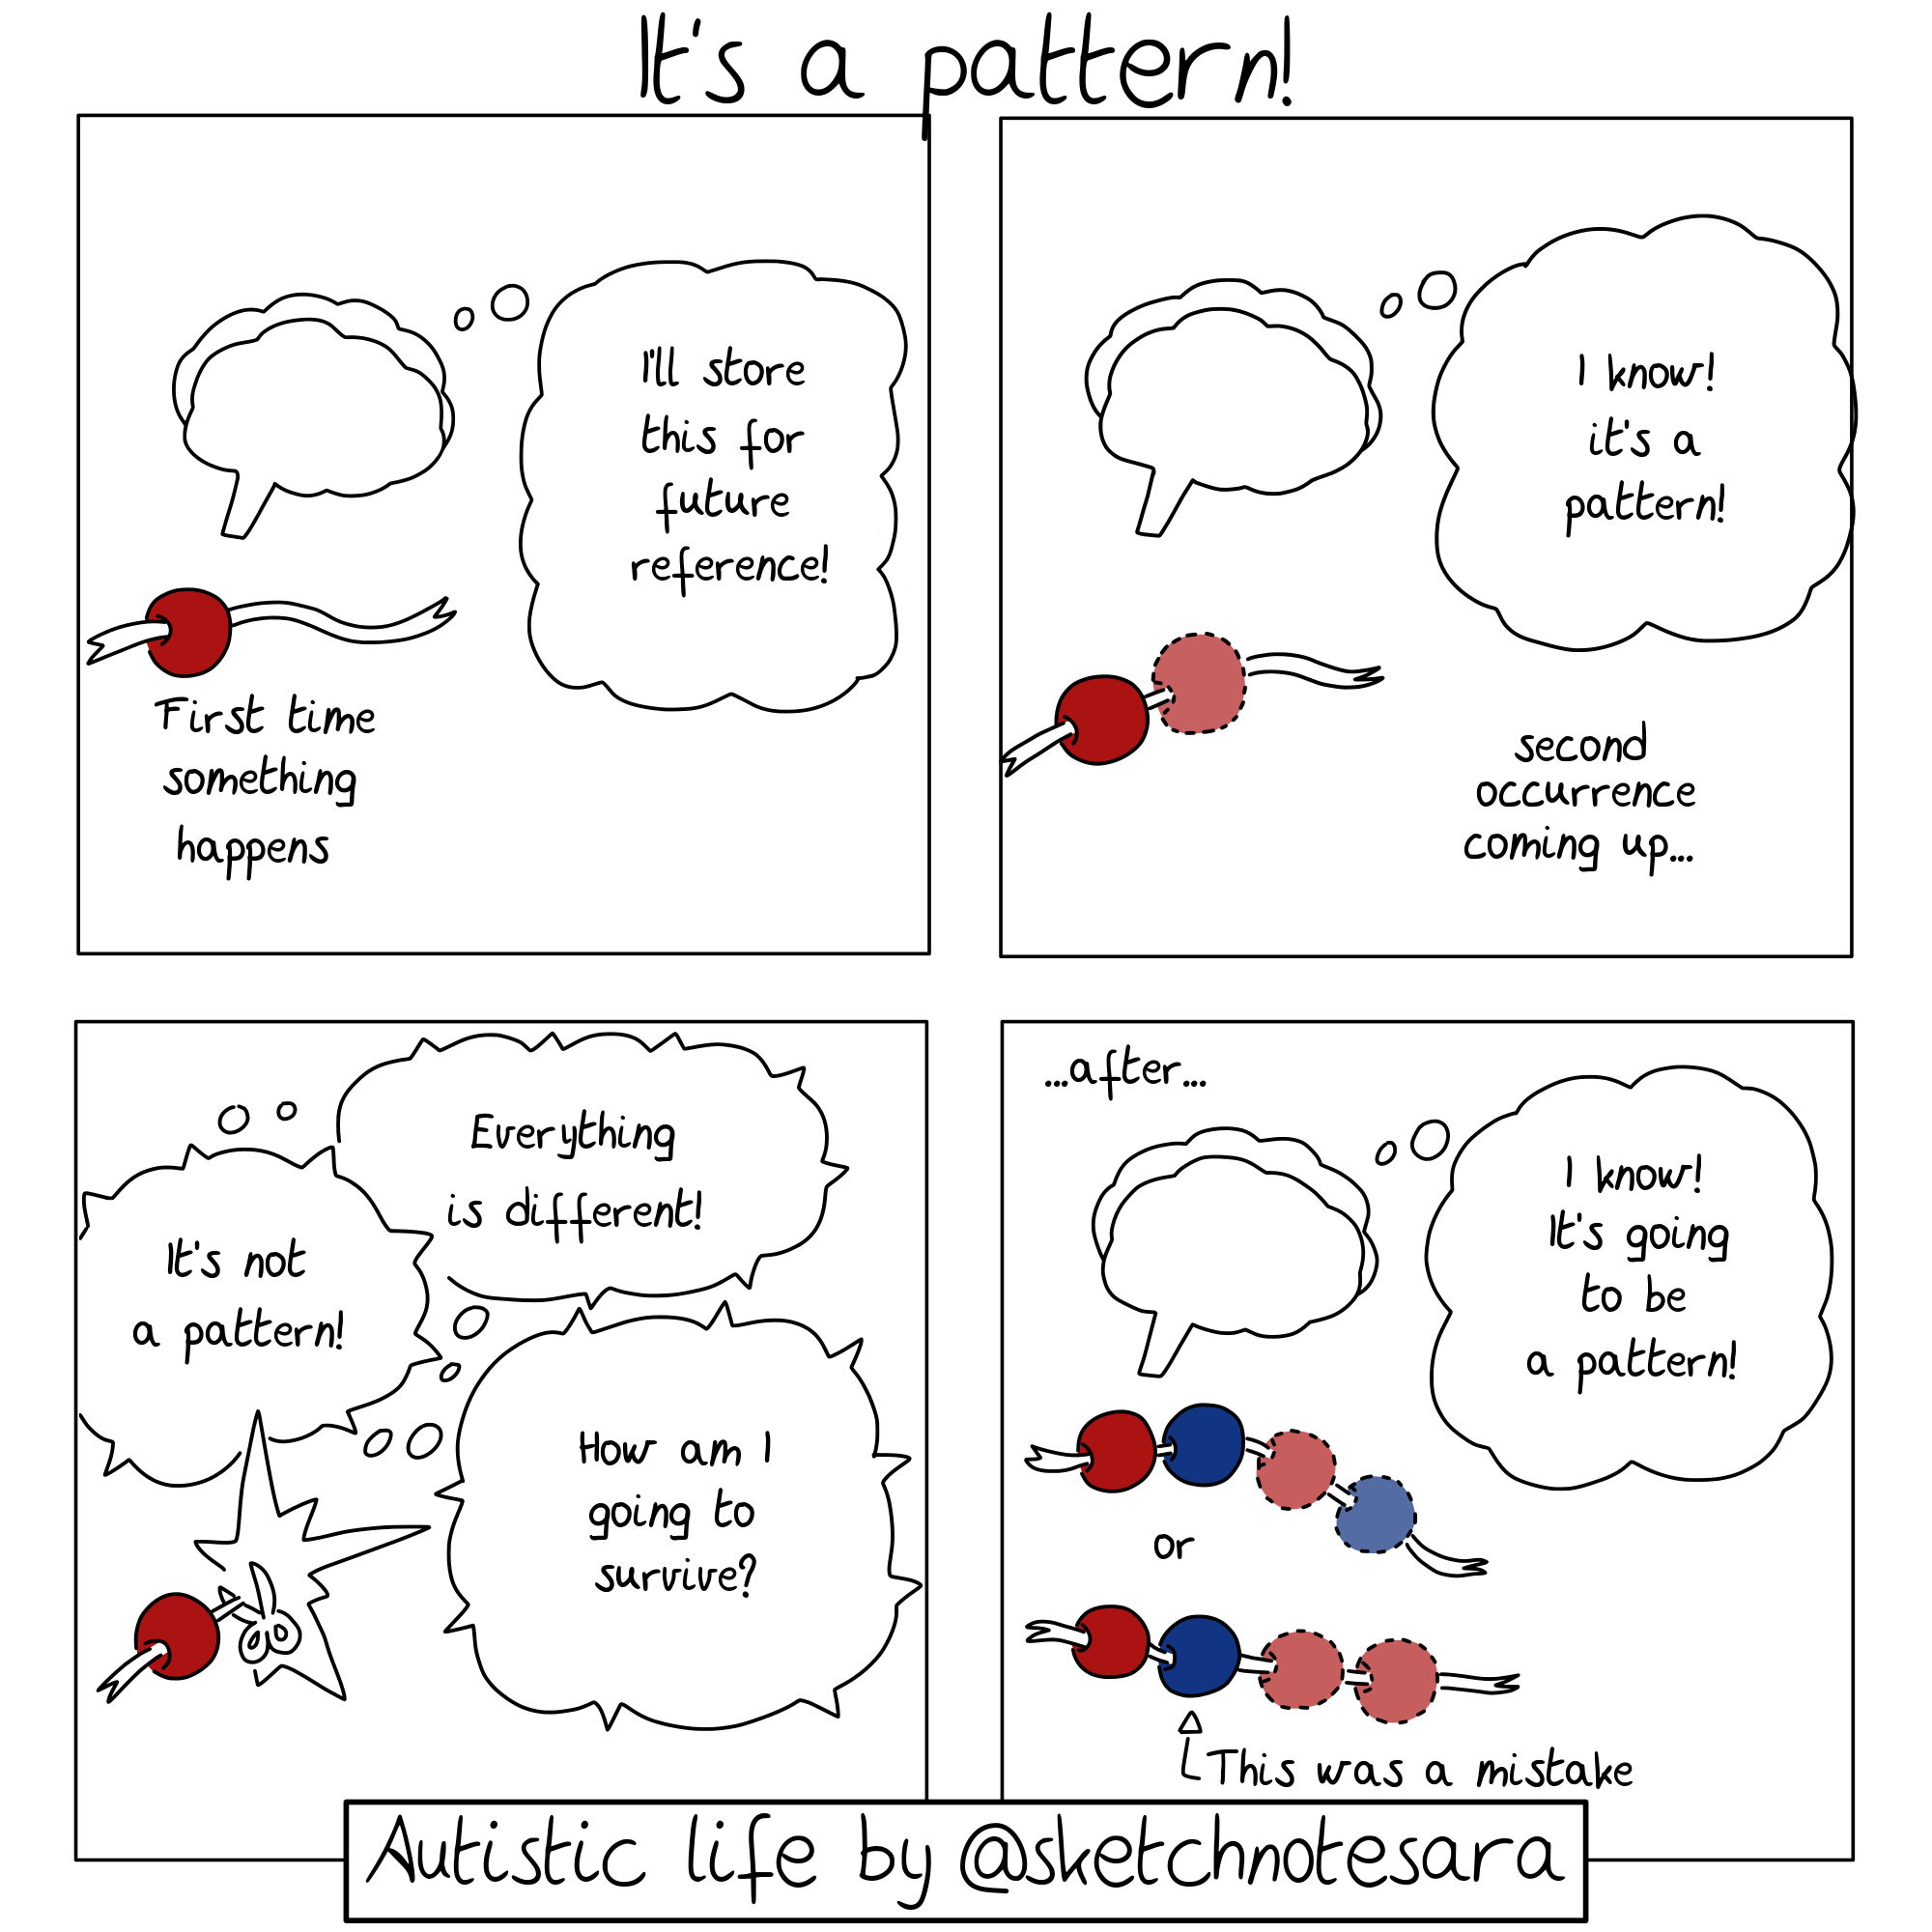 It's a pattern!
I'll store
this for
future
reference!
First time
something
happens
I know!
it's a
pattern!
second
occurrence
coming up...
Everything
is different!
It's not
a pattern!
How am I
going to
survive?
...after...
I know!
It's going
to be
a pattern!
or
This was a mistake
Autistic life by @sketchnotesara